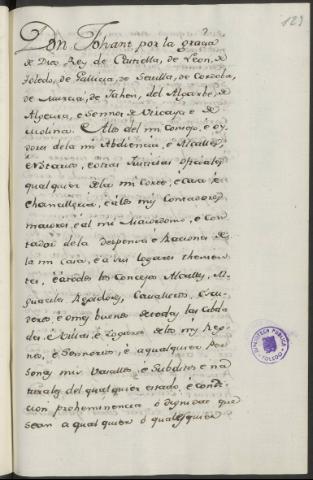 123
Don Johant por la gracia
de Dios Rey de Castiella, de Leon, de
Toledo, de Gallicia, de Sevilla, de Cordoba,
de Murcia, de Jahen, del Algarbe, de
Algecira, e Sennor de Vizcaya e de
Molina. A los del mi Consejo, é oy-
dores de la mi Abdiencia, e Alcalles,
é Notarios, e otras Justicias oficiales
qualquier de la mi Corte, é Casa é
Chancilleria, é a los my Contadores
maiores, é al mi Maiordomo, e Con-
tador de la despensa é Raciones de
la mi casa, é a sus lugares thenien-
tes, é a todos los Concejos Alcalles, Al-
guaciles Regidores, Cavalleros, Escu-
deros, é omes buenos de todas las Cibda-
des é Villas é Logares de los my Reg-
nos, é Sennorios, é a qualquier Per-
sonas mis Vasallos, é Subditos e na-
turales de qualquier estado é condi-
cion preheminencia ó dignidat que
sean a qual quier ó quales quier
BIBLIOTECA PUBLICA
TOLEDO